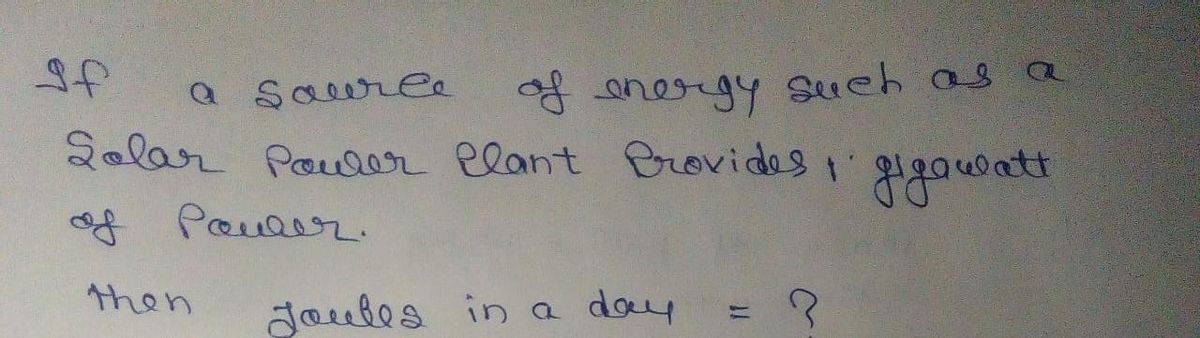 If a source of energy such as a
Solar Power Plant Provides 1 gigawatt
of Power.
then Joules in a day = ?